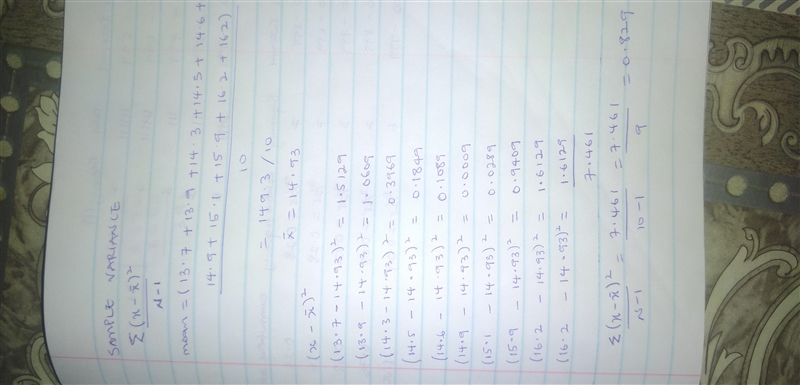 SAMPLE VARIANCE
Σ(x-x̄)²
N-1
mean = (13.7 + 13.9 + 14.3 + 14.5 + 14.6 +
14.9 + 15.1 + 15.9 + 16.2 + 16.2)
10
= 149.3/10
x̄ = 14.93
(x - x̄)²
(13.7 - 14.93)² = 1.5129
(13.9 - 14.93)² = 1.0609
(14.3 - 14.93)² = 0.3969
(14.5 - 14.93)² = 0.1849
(14.6 - 14.93)² = 0.1089
(14.9 - 14.93)² = 0.0009
(15.1 - 14.93)² = 0.0289
(15.9 - 14.93)² = 0.9409
(16.2 - 14.93)² = 1.6129
(16.2 - 14.93)² = 1.6129
7.461
Σ(x-x̄)² = 7.461 = 7.461 = 0.829
N-1 10-1 9